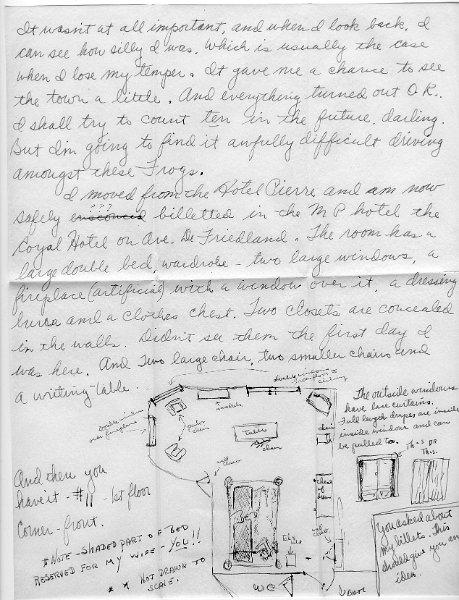 It wasn't at all important, and when I look back, I
can see how silly I was, which is usually the case
when I lose my temper. It gave me a chance to see
the town a little. And everything turned out O.K..
I shall try to count ten in the future, darling.
But I'm going to find it awfully difficult driving
amongst these Frogs.
I moved from the Hotel Pierre and am now
safely billetted in the M P hotel the
Royal Hotel on Ave. De Friedland. The room has a
large double bed, wardrobe - two large windows, a
fireplace (artificial) with a window over it, a dressing
and a clothes chest. Two closets are concealed
in the walls. Didn't see them the first day I
was here. And two large chair, two smaller chairs and
a writing-table.
The outside windows
have lace curtains.
Full length drapes are inside
inside windows and can
be pulled to.
This or
This.
Table
chair
And there you
have it - #11 - 1st floor
Corner - front.
* Note - Shaded part of bed
reserved for my wife - You!!
* * Not drawn to
scale.
W C
Door
You asked about
my billets. This
should give you an
idea.